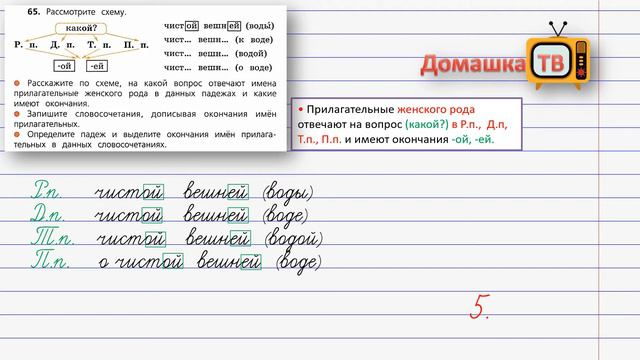 65. Рассмотрите схему.
какой?
Р. п. Д. п. Т. п. П. п.
-ой -ей
чистой вешней (воды)
чист... вешн... (к воде)
чист... вешн... (водой)
чист... вешн... (о воде)
Расскажите по схеме, на какой вопрос отвечают имена
прилагательные женского рода в данных падежах и какие
имеют окончания.
Запишите словосочетания, дописывая окончания имён
прилагательных.
Определите падеж и выделите окончания имён прилага-
тельных в данных словосочетаниях.
Домашка ТВ
• Прилагательные женского рода
отвечают на вопрос (какой?) в Р.п., Д.п,
Т.п., П.п. и имеют окончания -ой, -ей.
Р.п. чистой вешней (воды)
Д.п. чистой вешней (воде)
Т.п. чистой вешней (водой)
П.п. о чистой вешней (воде)
5.